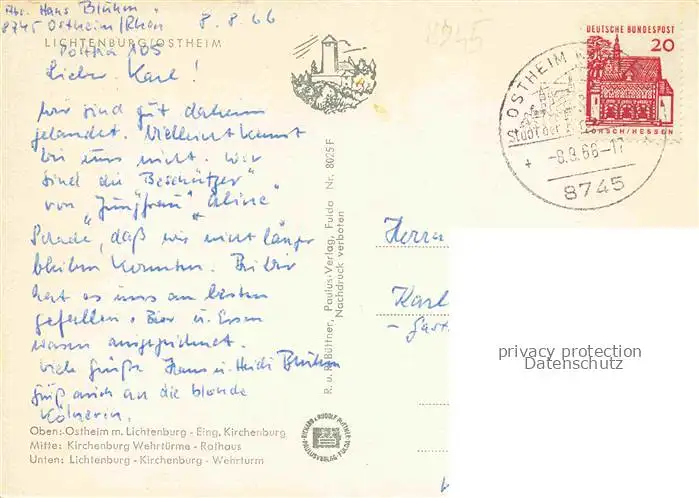 Abs. Hans Blühm
8745 Ostheim/Rhön 8.8.66
Postfa 105
LICHTENBURG/OSTHEIM
8745
DEUTSCHE BUNDESPOST
20
LORSCH/HESSEN
OSTHEIM
-8.8.66-17
8745
Lieber Karl!
Wir sind gut daheim
gelandet. Vielleicht kennst
Du uns nicht. Wir
sind die Beschützer
von „Jungfrau Aline"
Schade, daß wir nicht länger
bleiben konnten. Bei Dir
hat es uns am besten
gefallen. Bier u. Essen
waren ausgezeichnet.
Viele Grüße Hans u. Heidi Blühm
Grüß auch an die blonde
Kölnerin.
R. u. R. Büttner, Paulus-Verlag, Fulda Nr. 8025 F
Nachdruck verboten
Herrn
Karl
- Gast
privacy protection
Datenschutz
Oben: Ostheim m. Lichtenburg - Eing. Kirchenburg
Mitte: Kirchenburg Wehrtürme - Rathaus
Unten: Lichtenburg - Kirchenburg - Wehrturm